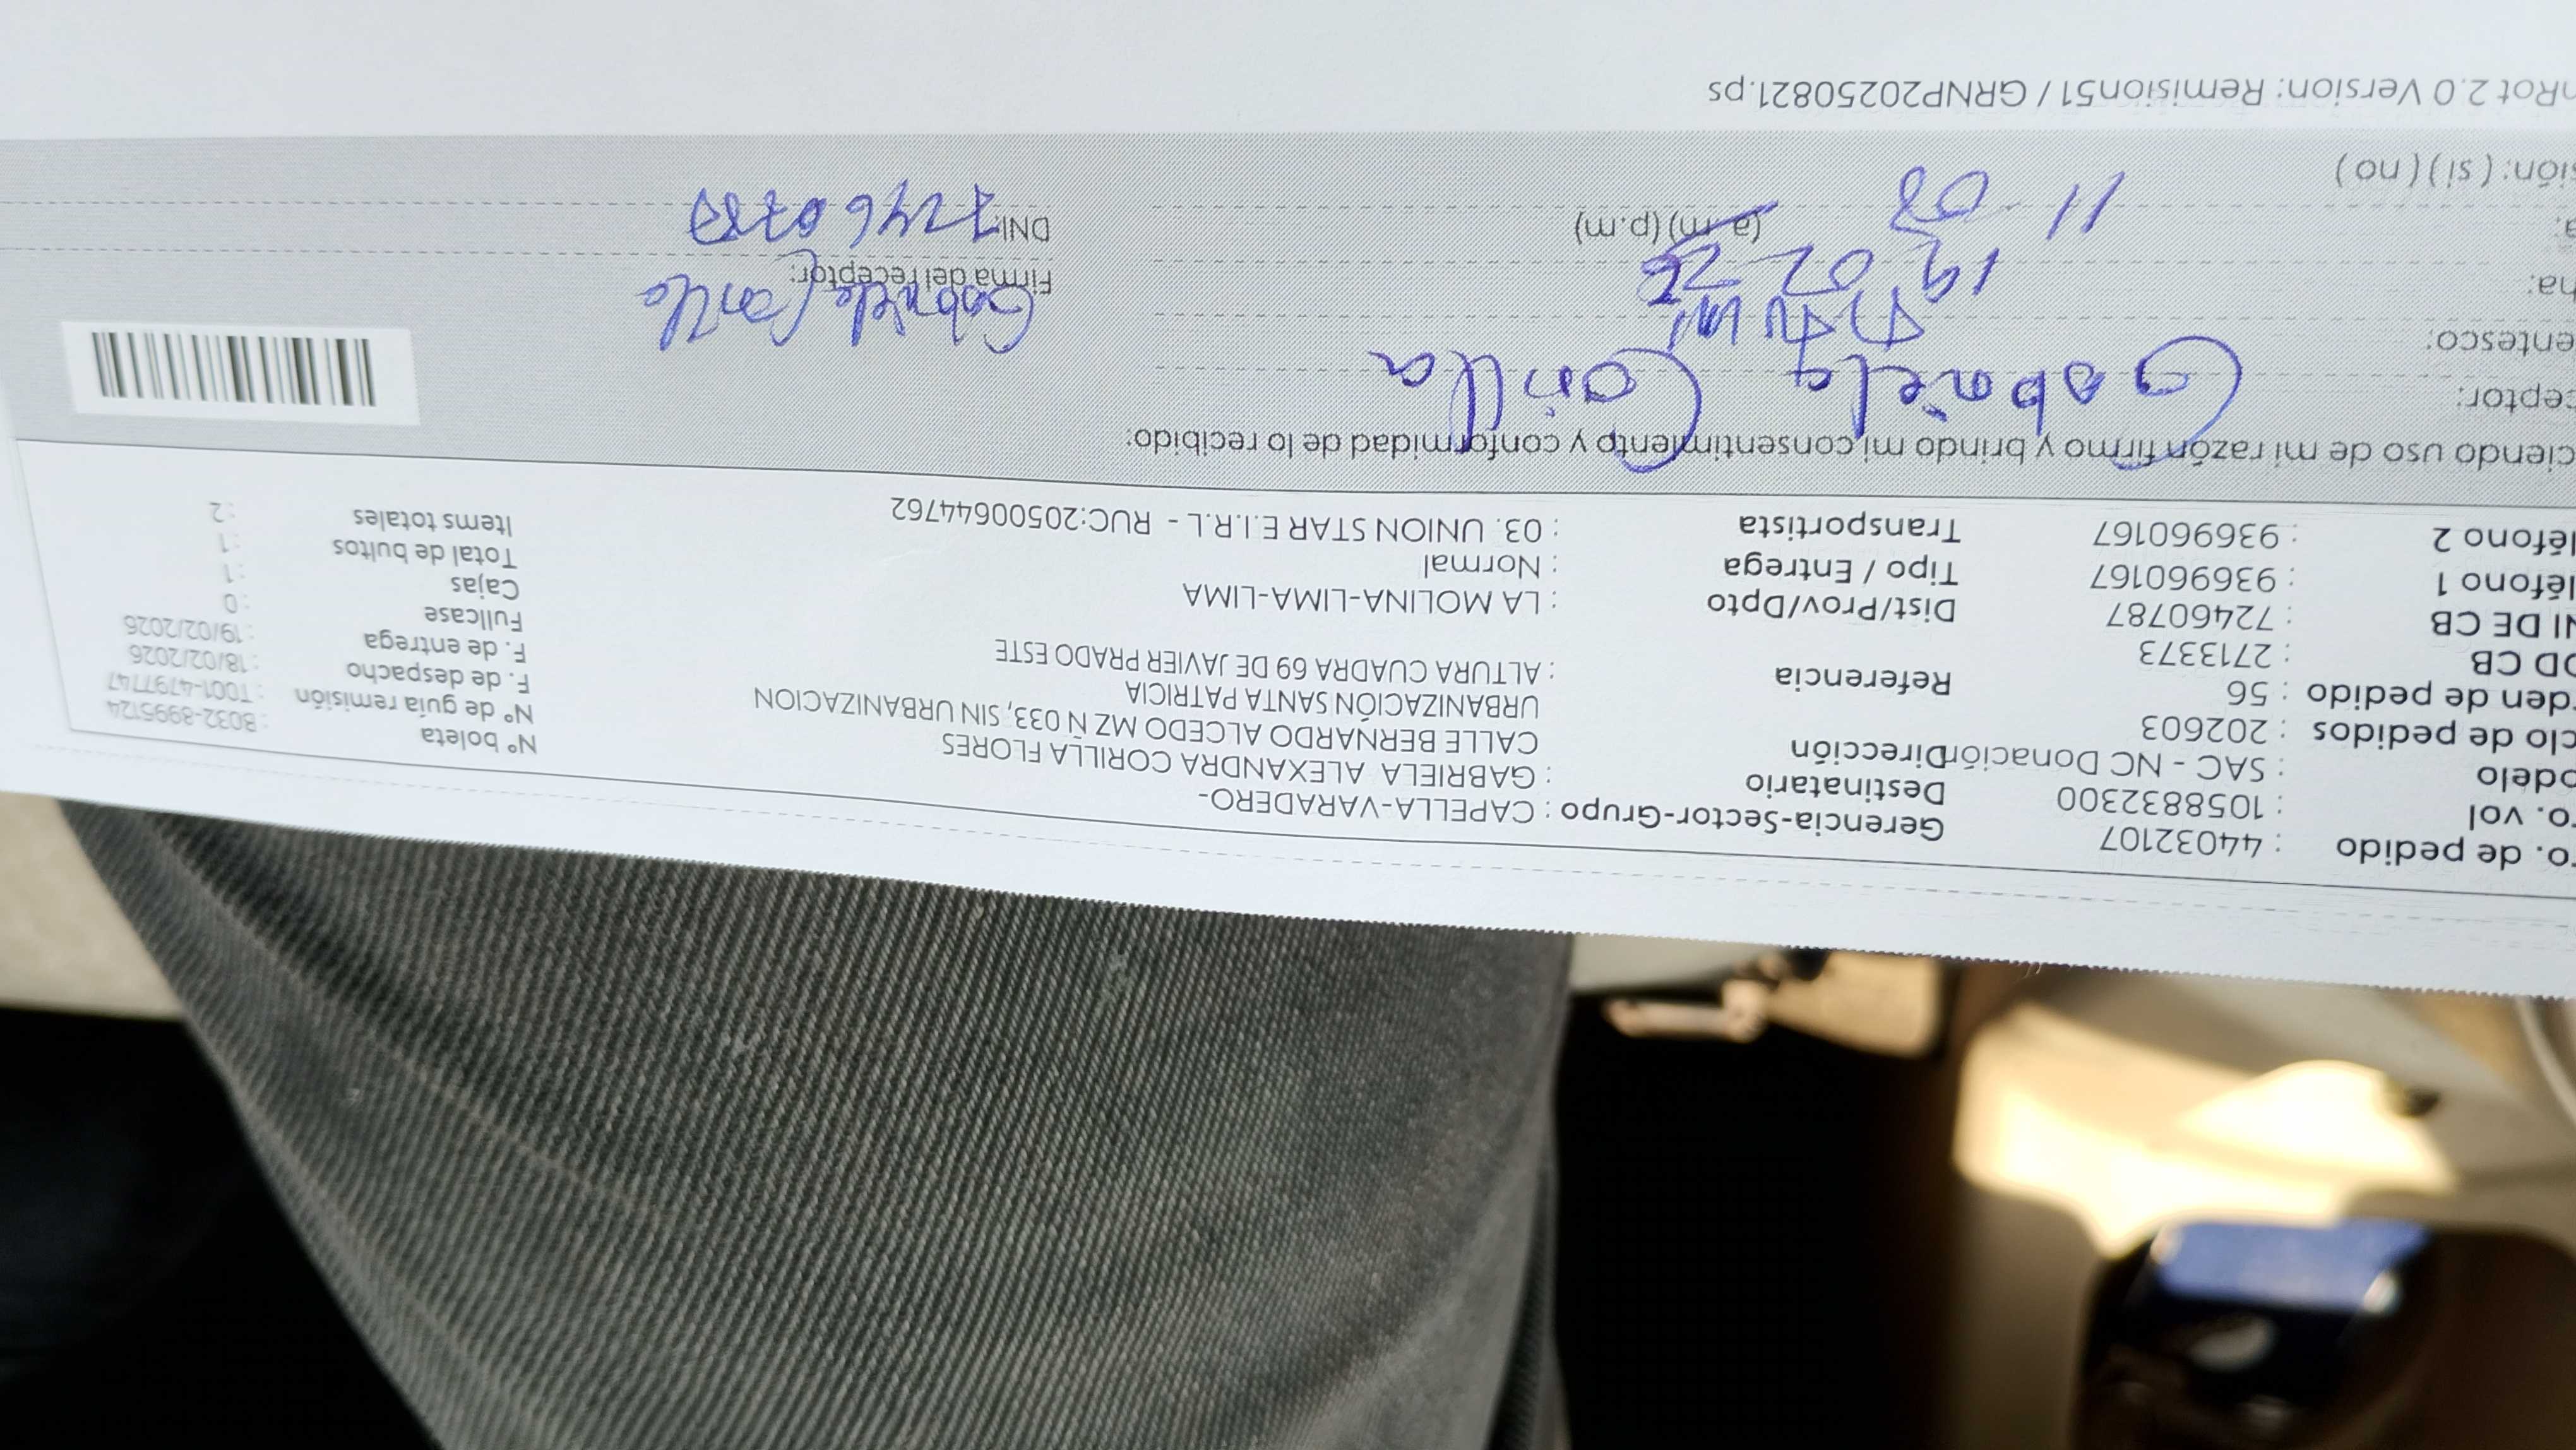 ro. de pedido : 44032107
ro. vol : 1058832300
odelo : SAC - NC Donación
clo de pedidos : 202603
rden de pedido : 56
OD CB : 2713373
NI DE CB : 72460787
léfono 1 : 936960167
léfono 2 : 936960167
Gerencia-Sector-Grupo : CAPELLA-VARADERO-
Destinatario : GABRIELA ALEXANDRA CORILLA FLORES
Dirección CALLE BERNARDO ALCEDO MZ Ñ 033, SIN URBANIZACION
URBANIZACIÓN SANTA PATRICIA
Referencia : ALTURA CUADRA 69 DE JAVIER PRADO ESTE
Dist/Prov/Dpto : LA MOLINA-LIMA-LIMA
Tipo / Entrega : Normal
Transportista : 03. UNION STAR E.I.R.L - RUC:20500644762
Nº boleta : B032-8995124
Nº de guía remisión : T001-4797747
F. de despacho : 18/02/2026
F. de entrega : 19/02/2026
Fullcase : 0
Cajas : 1
Total de bultos : 1
Items totales : 2
ciendo uso de mi razón firmo y brindo mi consentimiento y conformidad de lo recibido:
ceptor: Gabriela Corilla
entesco:
ha: 19 02 26
a: 11 08 (a.m) (p.m)
sión: ( si ) ( no )
Gabriela Corilla
Firma del receptor:
DNI: 72460787
nRot 2.0 Version: Remision51 / GRNP20250821.ps